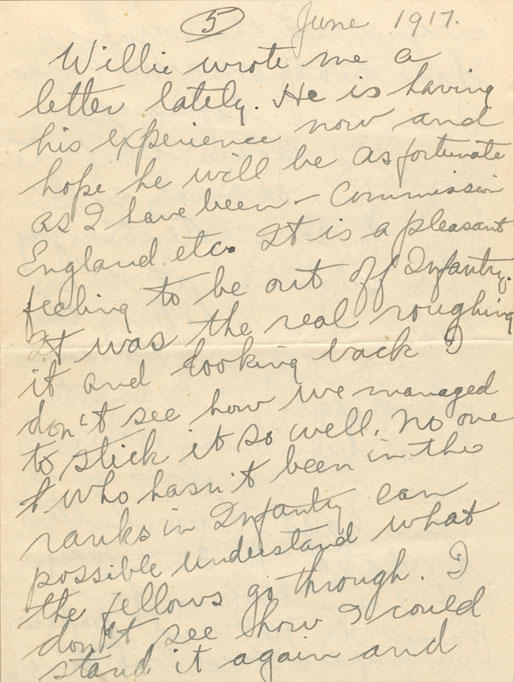 5 June 1917.
Willie wrote me a
letter lately. He is having
his experience now and
hope he will be as fortunate
as I have been - Commission
England etc. It is a pleasant
feeling to be out of Infantry.
It was the real roughing
it and looking back I
don't see how we managed
to stick it so well. No one
who hasn't been in the
ranks in Infantry can
possible understand what
the fellows go through. I
don't see how I could
stand it again and